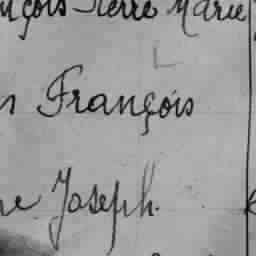 nçois Pierre Marie
n François
ne Joseph.